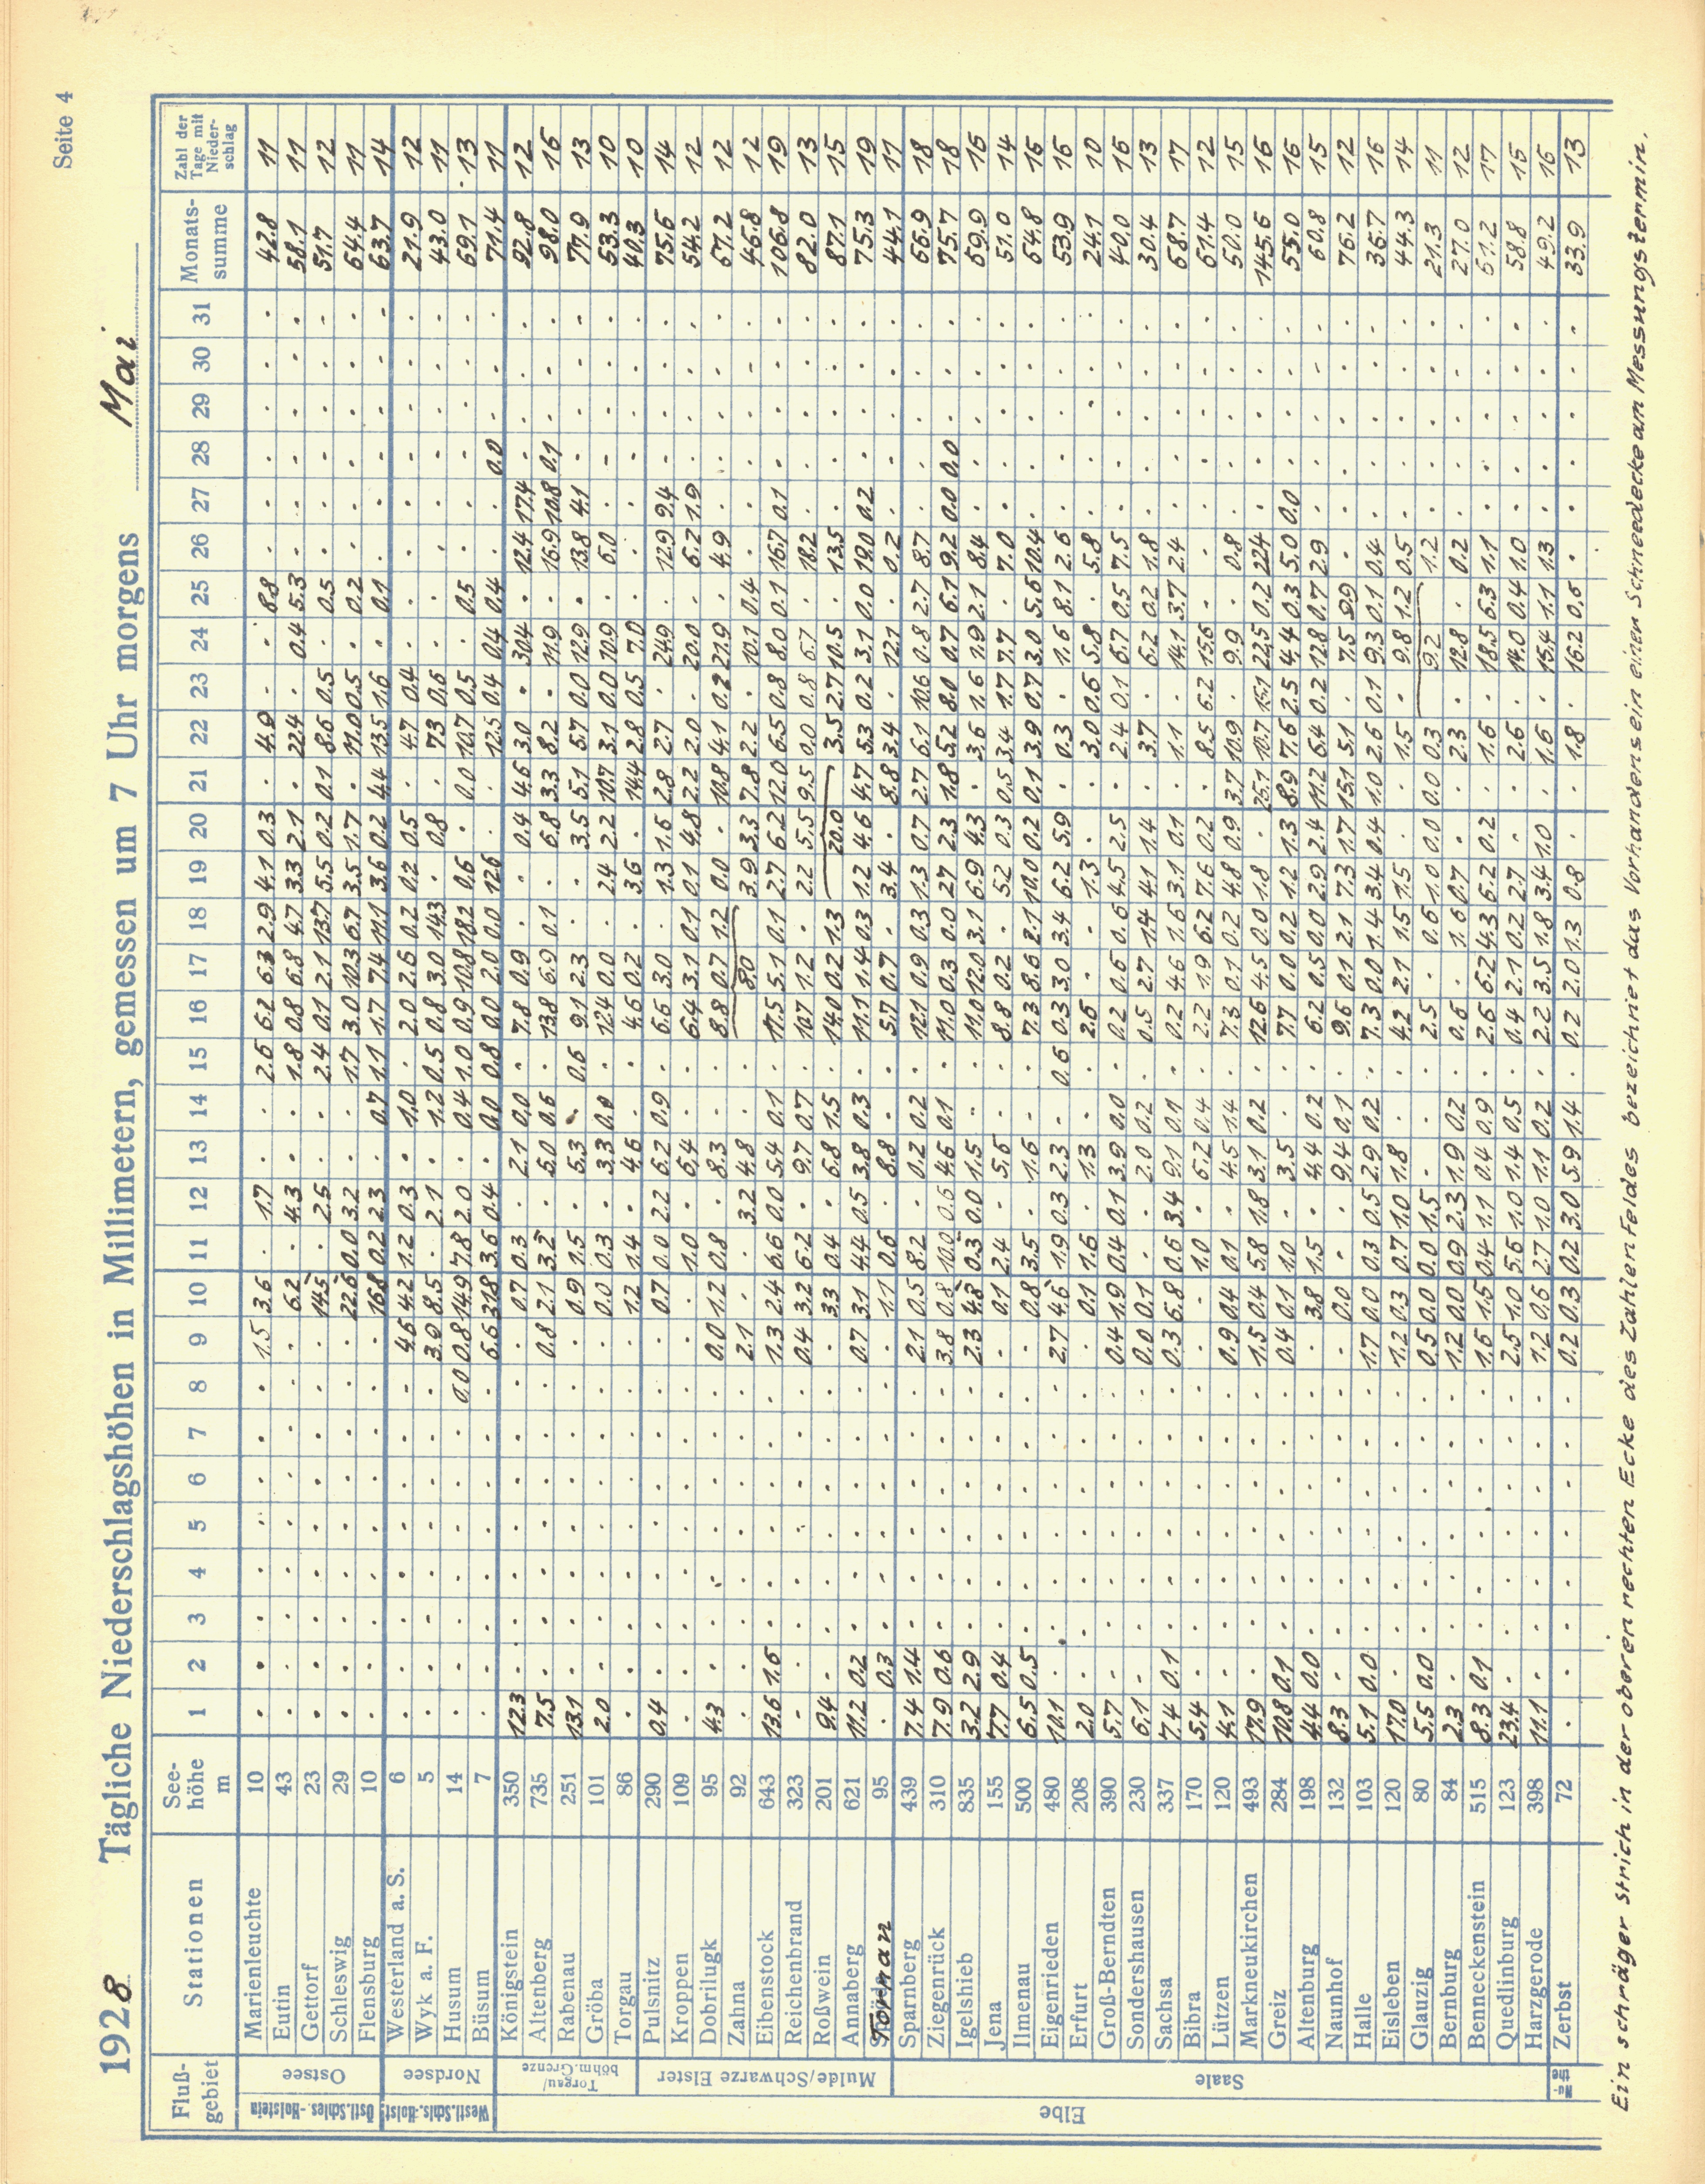 Seite 4
1928 Tägliche Niederschlagshöhen in Millimetern, gemessen um 7 Uhr morgens Mai
Fluß-gebiet Stationen See-höhe m 1 2 3 4 5 6 7 8 9 10 11 12 13 14 15 16 17 18 19 20 21 22 23 24 25 26 27 28 29 30 31 Monats-summe Zahl der Tage mit Nieder-schlag
Östl. Schles.-Holstein
Ostsee
Marienleuchte 10 . . . . . . . . 1.5 3.6 . 1.7 . . 2.6 6.2 6.3 2.9 4.1 0.3 . 4.9 . . 8.8 . . . . . . 42.8 11
Eutin 43 . . . . . . . . . 6.2 . 4.3 . . 1.8 0.8 6.8 4.7 3.3 2.1 . 22.4 . 0.4 5.3 . . . . . . 58.1 11
Gettorf 23 . . . . . . . . . 14.5 . 2.5 . . 2.4 0.1 2.1 13.7 5.5 0.2 0.1 8.6 0.5 . 0.5 . . . . . . 51.7 12
Schleswig 29 . . . . . . . . . 22.6 0.0 3.2 . . 1.7 3.0 10.3 6.7 3.5 1.7 . 11.0 0.5 . 0.2 . . . . . . 64.4 11
Flensburg 10 . . . . . . . . . 16.8 0.2 2.3 . 0.7 1.1 1.7 7.4 11.1 3.6 0.2 4.4 13.5 1.6 . 0.1 . . . . . . 63.7 14
Westl. Schls. Holst
Nordsee
Westerland a. S. 6 . . . . . . . . 4.6 4.2 1.2 0.3 . 1.0 . 2.0 2.6 0.2 0.2 0.5 . 4.7 0.4 . . . . . . . . 21.9 12
Wyk a. F. 5 . . . . . . . . 3.9 8.5 . 2.1 . 1.2 0.5 0.8 3.0 14.3 . 0.8 . 7.3 0.6 . . . . . . . . 43.0 11
Husum 14 . . . . . . . 0.0 0.8 14.9 7.8 2.0 . 0.4 1.0 0.9 10.8 18.2 0.6 . 0.0 10.7 0.5 . 0.5 . . . . . . 69.1 13
Büsum 7 . . . . . . . . 6.6 31.8 3.6 0.4 . 0.0 0.8 0.0 2.0 0.0 12.6 . . 12.5 0.4 0.4 0.4 . . 0.0 . . . 71.4 11
Elbe
Torgau/böhm. Grenze
Königstein 350 12.3 . . . . . . . . 0.7 0.3 . 2.1 0.0 . 7.8 0.9 . . 0.4 4.6 3.0 . 30.4 . 12.4 17.4 . . . . 92.8 12
Altenberg 735 7.5 . . . . . . . 0.8 2.1 3.2 . 5.0 0.6 . 13.8 6.9 0.1 . 6.8 3.3 8.2 . 11.9 . 16.9 10.8 0.1 . . . 98.0 16
Rabenau 251 13.1 . . . . . . . . 0.9 1.5 . 5.3 . 0.6 9.1 2.3 . . 3.5 5.1 5.7 0.0 12.9 . 13.8 4.1 . . . . 77.9 13
Gröba 101 2.0 . . . . . . . . 0.0 0.3 . 3.3 0.0 . 12.4 0.0 . 2.4 2.2 10.7 3.1 0.0 10.9 . 6.0 . . . . . 53.3 10
Torgau 86 . . . . . . . . . 1.2 1.4 . 4.6 . . 4.6 0.2 . 3.6 . 14.4 2.8 0.5 7.0 . . . . . . . 40.3 10
Mulde/Schwarze Elster
Pulsnitz 290 0.4 . . . . . . . . 0.7 0.0 2.2 6.2 0.9 . 6.6 3.0 . 1.3 1.6 2.8 2.7 . 24.9 . 12.9 9.4 . . . . 75.6 14
Kroppen 109 . . . . . . . . . . 1.0 . 6.4 . . 6.4 3.1 0.1 0.1 4.8 2.2 2.0 . 20.0 . 6.2 1.9 . . . . 54.2 12
Dobrilugk 95 4.3 . . . . . . . 0.0 1.2 0.8 . 8.3 . . 8.8 0.7 1.2 0.0 . 10.8 4.1 0.2 21.9 . 4.9 . . . . . 67.2 12
Zahna 92 . . . . . . . . 2.1 . . 3.2 4.8 . . 8.0 3.9 3.3 7.8 2.2 . 10.1 0.4 . . . . . . 45.8 12
Eibenstock 643 13.6 1.6 . . . . . . 1.3 2.4 6.6 0.0 5.4 0.1 . 11.5 5.1 0.1 2.7 6.2 12.0 6.5 0.8 8.0 0.1 16.7 0.1 . . . . 106.8 19
Reichenbrand 323 . . . . . . . . 0.4 3.2 6.2 . 9.7 0.7 . 10.7 1.2 . 2.2 5.5 9.5 0.0 0.8 6.7 . 18.2 . . . . . 82.0 13
Roßwein 201 9.4 . . . . . . . . 3.3 0.4 . 6.8 1.5 . 14.0 0.2 1.3 20.0 3.5 2.7 10.5 . 13.5 . . . . . 87.1 15
Annaberg 621 11.2 0.2 . . . . . . 0.7 3.1 4.4 0.5 3.8 0.3 . 11.1 1.4 0.3 1.2 4.6 4.7 5.3 0.2 3.1 0.0 19.0 0.2 . . . . 75.3 19
95 . 0.3 . . . . . . . 1.1 0.6 . 8.8 . . 5.7 0.7 . 3.4 . 8.8 3.4 . 12.1 . 0.2 . . . . . 44.1 11
Saale
Sparnberg 439 7.4 1.4 . . . . . . 2.1 0.5 8.2 . 0.2 0.2 . 12.1 0.9 0.3 1.3 0.7 2.7 6.1 10.6 0.8 2.7 8.7 . . . . . 66.9 18
Ziegenrück 310 7.9 0.6 . . . . . . 3.8 0.8 10.0 0.6 4.6 0.1 . 11.0 0.3 0.0 2.7 2.3 1.8 5.2 8.0 0.7 6.1 9.2 0.0 0.0 . . . 75.7 18
Igelshieb 835 3.2 2.9 . . . . . . 2.3 4.8 0.3 0.0 1.5 . . 11.0 12.0 3.1 6.9 4.3 . 3.6 1.6 1.9 2.1 8.4 . . . . . 69.9 16
Jena 155 7.7 0.4 . . . . . . . 0.1 2.4 . 5.6 . . 8.8 0.2 . 5.2 0.3 0.5 3.4 1.7 7.7 . 7.0 . . . . . 51.0 14
Ilmenau 500 6.5 0.5 . . . . . . . 0.8 3.5 . 1.6 . . 7.3 8.6 2.1 10.0 0.2 0.1 3.9 0.7 3.0 5.6 10.4 . . . . . 64.8 16
Eigenrieden 480 10.1 . . . . . . . 2.7 4.6 1.9 0.3 2.3 . 0.6 0.3 3.0 3.4 6.2 5.9 . 0.3 . 1.6 8.1 2.6 . . . . . 53.9 16
Erfurt 208 2.0 . . . . . . . . 0.1 1.6 . 1.3 . . 2.6 . . 1.3 . . 3.0 0.6 5.8 . 5.8 . . . . . 24.1 10
Groß-Berndten 390 5.7 . . . . . . . 0.4 1.9 0.4 0.1 3.9 0.0 . 0.2 0.6 0.6 4.5 2.5 . 2.4 0.1 6.7 0.5 7.5 . . . . . 40.0 16
Sondershausen 230 6.1 . . . . . . . 0.0 0.1 . . 2.0 0.2 . 0.5 2.7 1.4 4.1 1.4 . 3.7 . 6.2 0.2 1.8 . . . . . 30.4 13
Sachsa 337 7.4 0.1 . . . . . . 0.3 6.8 0.6 3.4 9.1 0.1 . 0.2 4.6 1.6 3.1 0.1 . 1.1 . 14.1 3.7 2.4 . . . . . 68.7 17
Bibra 170 5.4 . . . . . . . . . 1.0 . 6.2 0.4 . 2.2 1.9 6.2 7.6 0.2 . 8.5 6.2 15.6 . . . . . . . 61.4 12
Lützen 120 4.1 . . . . . . . 0.9 0.4 0.1 . 4.5 1.4 . 7.3 0.1 0.2 4.8 0.9 3.7 10.9 . 9.9 . 0.8 . . . . . 50.0 15
Markneukirchen 493 17.9 . . . . . . . 1.5 0.4 5.8 1.8 3.1 0.2 . 12.6 4.5 0.0 1.8 . 25.1 10.7 15.1 22.5 0.2 22.4 . . . . . 145.6 16
Greiz 284 10.8 0.1 . . . . . . 0.4 0.1 1.0 . 3.5 . . 7.7 0.0 0.2 1.2 1.3 8.9 7.6 2.5 4.4 0.3 5.0 0.0 . . . . 55.0 16
Altenburg 198 4.4 0.0 . . . . . . . 3.8 1.5 . 4.4 0.2 . 6.2 0.5 0.0 2.9 2.4 11.2 6.4 0.2 12.8 0.7 2.9 . . . . . 60.8 15
Naunhof 132 8.3 . . . . . . . . 0.0 . . 9.4 0.1 . 9.6 0.1 2.1 7.3 1.7 15.1 5.1 . 7.5 9.9 . . . . . . 76.2 12
Halle 103 5.1 0.0 . . . . . . 1.7 0.0 0.3 0.5 2.9 0.2 . 7.3 0.0 1.4 3.4 0.4 1.0 2.6 0.1 9.3 0.1 0.4 . . . . . 36.7 16
Eisleben 120 17.0 . . . . . . . 1.2 0.3 0.7 1.0 1.8 . . 4.2 2.1 1.5 1.5 . . 1.5 . 9.8 1.2 0.5 . . . . . 44.3 14
Glauzig 80 5.5 0.0 . . . . . . 0.5 0.0 0.0 1.5 . . . 2.5 . 0.6 1.0 0.0 0.0 0.3 9.2 1.2 . . . . . 21.3 11
Bernburg 84 2.3 . . . . . . . 1.2 0.0 0.9 2.3 1.9 0.2 . 0.6 . 1.6 0.7 . . 2.3 . 12.8 . 0.2 . . . . . 27.0 12
Benneckenstein 515 8.3 0.1 . . . . . . 1.6 1.5 0.4 1.1 0.4 0.9 . 2.6 6.2 4.3 6.2 0.2 . 1.6 . 18.5 6.3 1.1 . . . . . 61.2 17
Quedlinburg 123 23.4 . . . . . . . 2.5 1.0 5.6 1.0 1.4 0.5 . 0.4 2.1 0.2 2.7 . . 2.6 . 14.0 0.4 1.0 . . . . . 58.8 15
Harzgerode 398 11.1 . . . . . . . 1.2 0.6 2.7 1.0 1.1 0.2 . 2.2 3.5 1.8 3.4 1.0 . 1.6 . 15.4 1.1 1.3 . . . . . 49.2 16
Zerbst 72 . . . . . . . . 0.2 0.3 0.2 3.0 5.9 1.4 . 0.2 2.0 1.3 0.8 . . 1.8 . 16.2 0.6 . . . . . . 33.9 13
Ein schräger Strich in der oberen rechten Ecke des Zahlenfeldes bezeichnet das Vorhandensein einer Schneedecke am Messungstermin.